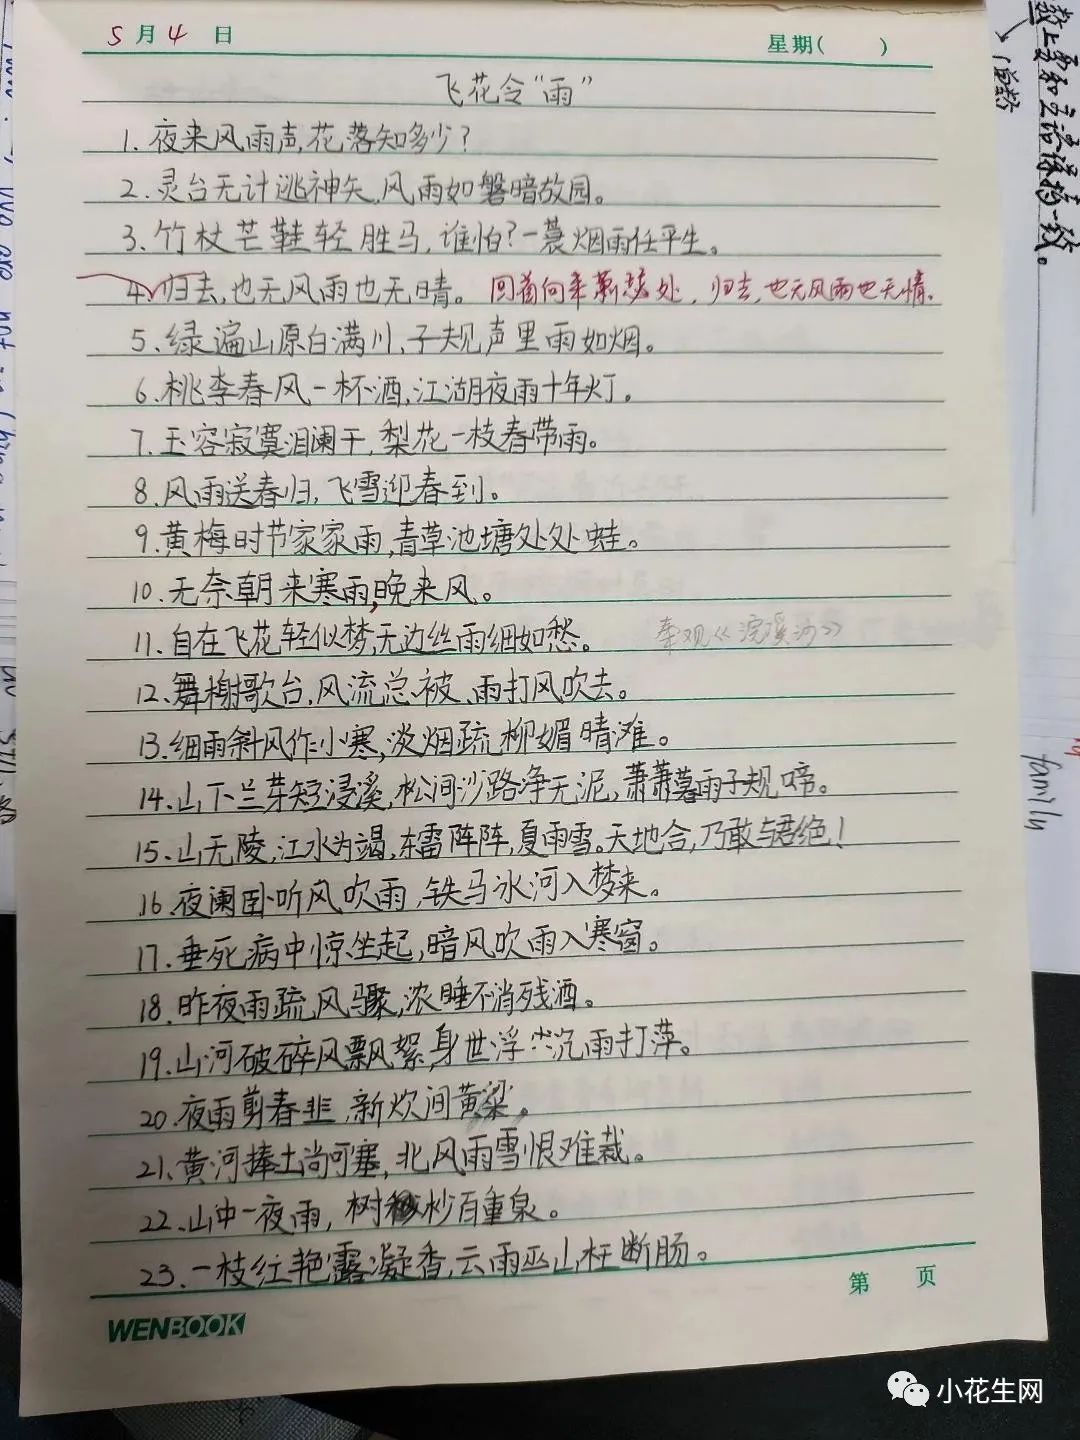 5月4日 星期( )
飞花令“雨”
1.夜来风雨声,花落知多少?
2.灵台无计逃神矢,风雨如磐暗故园。
3.竹杖芒鞋轻胜马,谁怕?一蓑烟雨任平生。
4.归去,也无风雨也无晴。 回首向来萧瑟处,归去,也无风雨也无情.
5、绿遍山原白满川,子规声里雨如烟。
6.桃李春风一杯酒,江湖夜雨十年灯。
7.玉容寂寞泪阑干,梨花一枝春带雨。
8.风雨送春归,飞雪迎春到。
9.黄梅时节家家雨,青草池塘处处蛙。
10.无奈朝来寒雨,晚来风。
11.自在飞花轻似梦,无边丝雨细如愁。 秦观《浣溪沙》
12.舞榭歌台,风流总被、雨打风吹去。
13.细雨斜风作小寒,淡烟疏柳媚晴滩。
14.山下兰芽短浸溪,松间沙路净无泥,萧萧暮雨子规啼。
15、山无陵,江水为竭,东雷阵阵,夏雨雪。天地合,乃敢与君绝!
16.夜阑卧听风吹雨,铁马冰河入梦来。
17.垂死病中惊坐起,暗风吹雨入寒窗。
18.昨夜雨疏风骤,浓睡不消残酒。
19.山河破碎风飘絮,身世浮沉雨打萍。
20.夜雨剪春韭,新炊间黄梁。
21、黄河捧土尚可塞,北风雨雪恨难裁。
22.山中一夜雨,树杪百重泉。
23.一枝红艳露凝香,云雨巫山枉断肠。
第 页
WENBOOK
小花生网
family